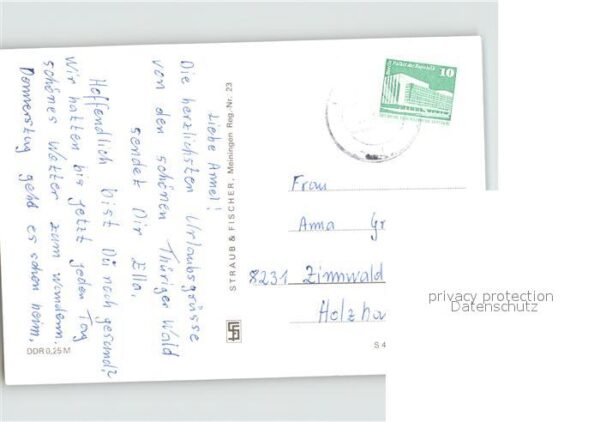 Liebe Annel!
Die herzlichsten Urlaubsgrüsse
von den schönen Thüriger Wald
sendet Dir Ella.
Hoffendlich bist Du noch gesund?
Wir hatten bis jetzt jeden Tag
schönes Wetter zum wandern.
Donnerstag gehd es schon heim.
DDR 0,25 M
STRAUB & FISCHER, Meiningen Reg.-Nr. 23
10
Frau
Anna Gr
8231 Zinnwald
Holzha
S 4
privacy protection
Datenschutz